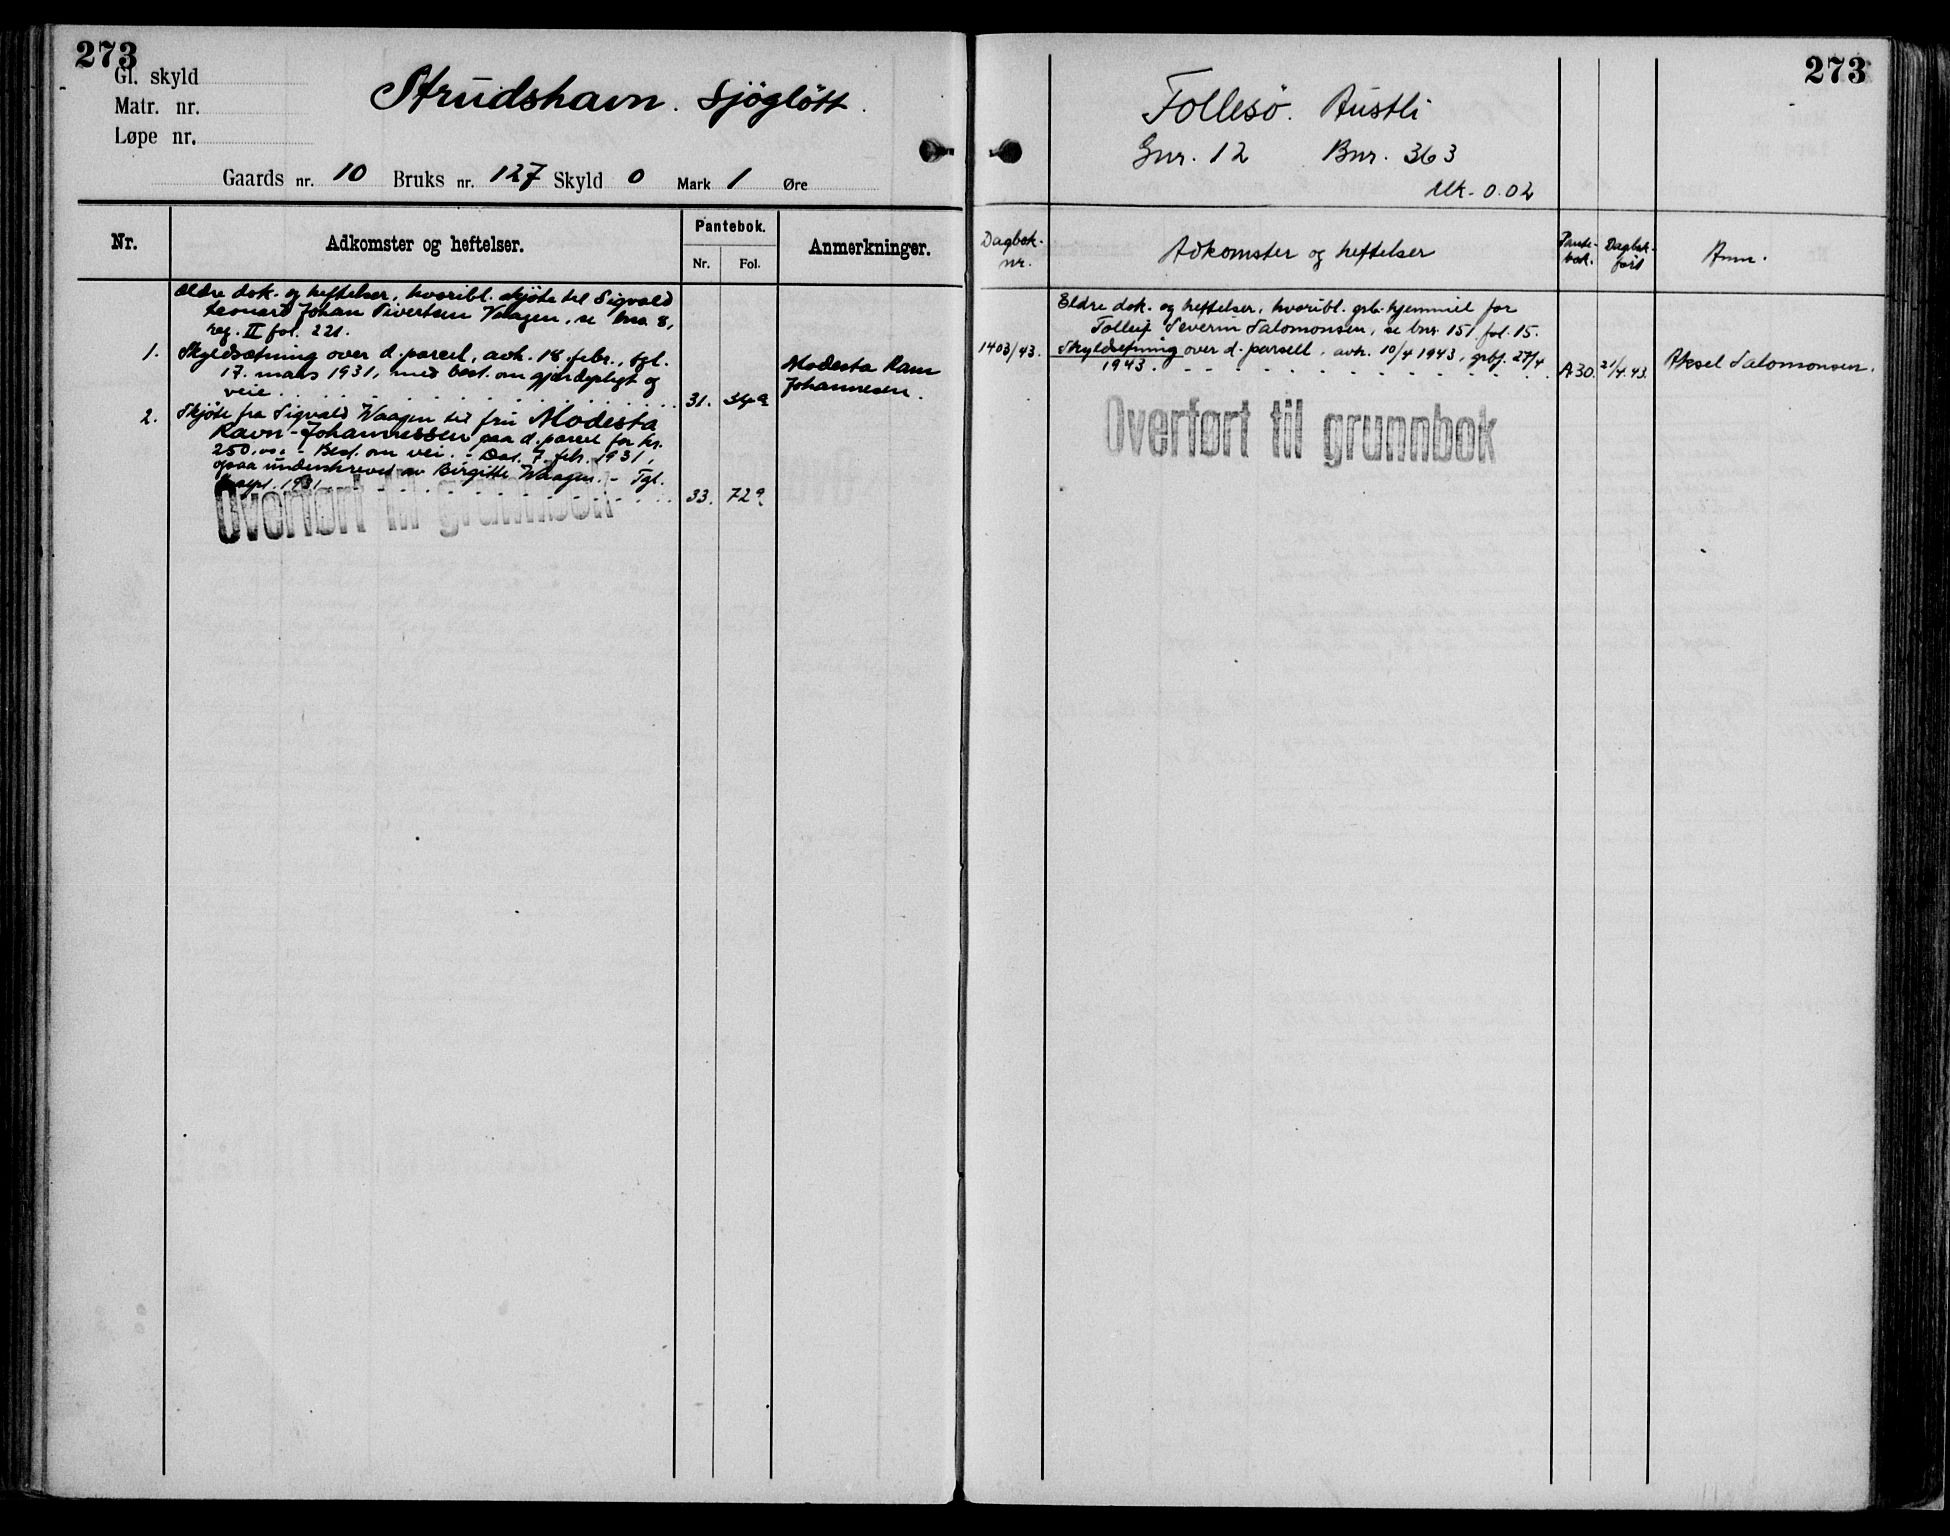 273
Gl. skyld
Matr. nr.
Løpe nr.
Strudshavn. Sjögløtt.
Gaards nr. 10 Bruks nr. 127 Skyld 0 Mark 1 Øre
Nr. Adkomster og heftelser. Pantebok. Anmerkninger.
Nr. Fol.
Ældre dok. og heftelser, hvoribl. skjøte til Sigvald
Leonard Johan Sivertsen Vaagen, se bno 8,
reg. II fol. 221.
1. Skyldsætning over d. parcel, avh. 18. febr., tgl.
17. mars 1931, med best. om gjerdepligt og
veie. 31. 34a
Modesta Ravn
Johannesen.
2. Skjøte fra Sigvald Waagen til fru Modesta
Ravn-Johannessen paa d. parcel for kr.
250.00. - Best. om vei. - Dat. 7. febr. 1931,
ogsaa underskrevet av Birgitte Waagen. - Tgl.
sept. 1931 33. 729
Overført til grunnbok
273
Follesø. Austli
Gnr. 12 Bnr. 363
Mk. 0.02
Dagbok-
nr. Adkomster og heftelser Pante-
bok. Dagbok-
ført Anm.
Eldre dok. og heftelser, hvoribl. grb. hjemmel for
Tolleif Severin Salomonsen, se bnr. 151 fol. 15.
1403/43. Skyldsetning over d. parsell, avh. 10/4 1943, grbf. 27/4
1943. A30. 21/4.43. Aksel Salomonsen.
Overført til grunnbok